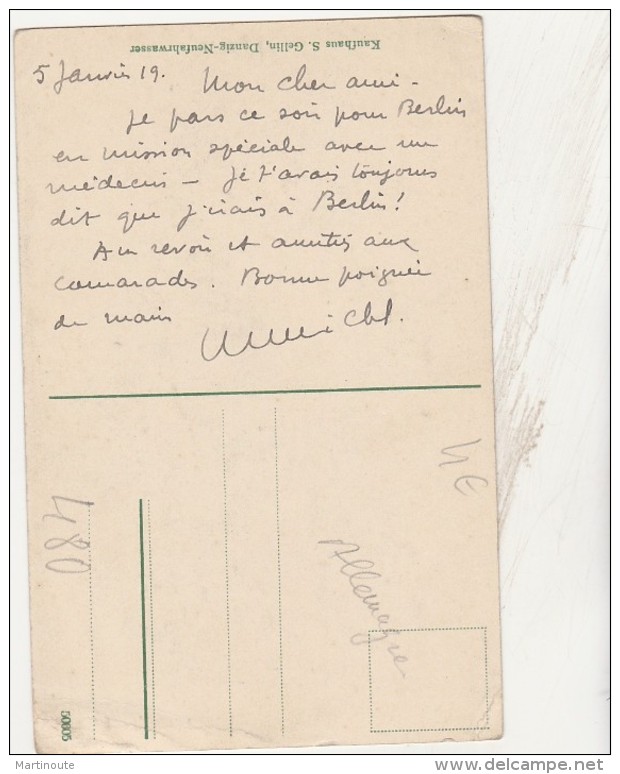 Kaufhaus S. Gellin, Danzig-Neufahrwasser
5 Janvier 19. Mon cher ami -
Je pars ce soir pour Berlin
en mission spéciale avec un
médecin - Je t'avais toujours
dit que j'irais à Berlin!
Au revoir et amitiés aux
camarades. Bonne poignée
de main
4€
480
Allemagne
50005
Martinoute
www.delcampe.net